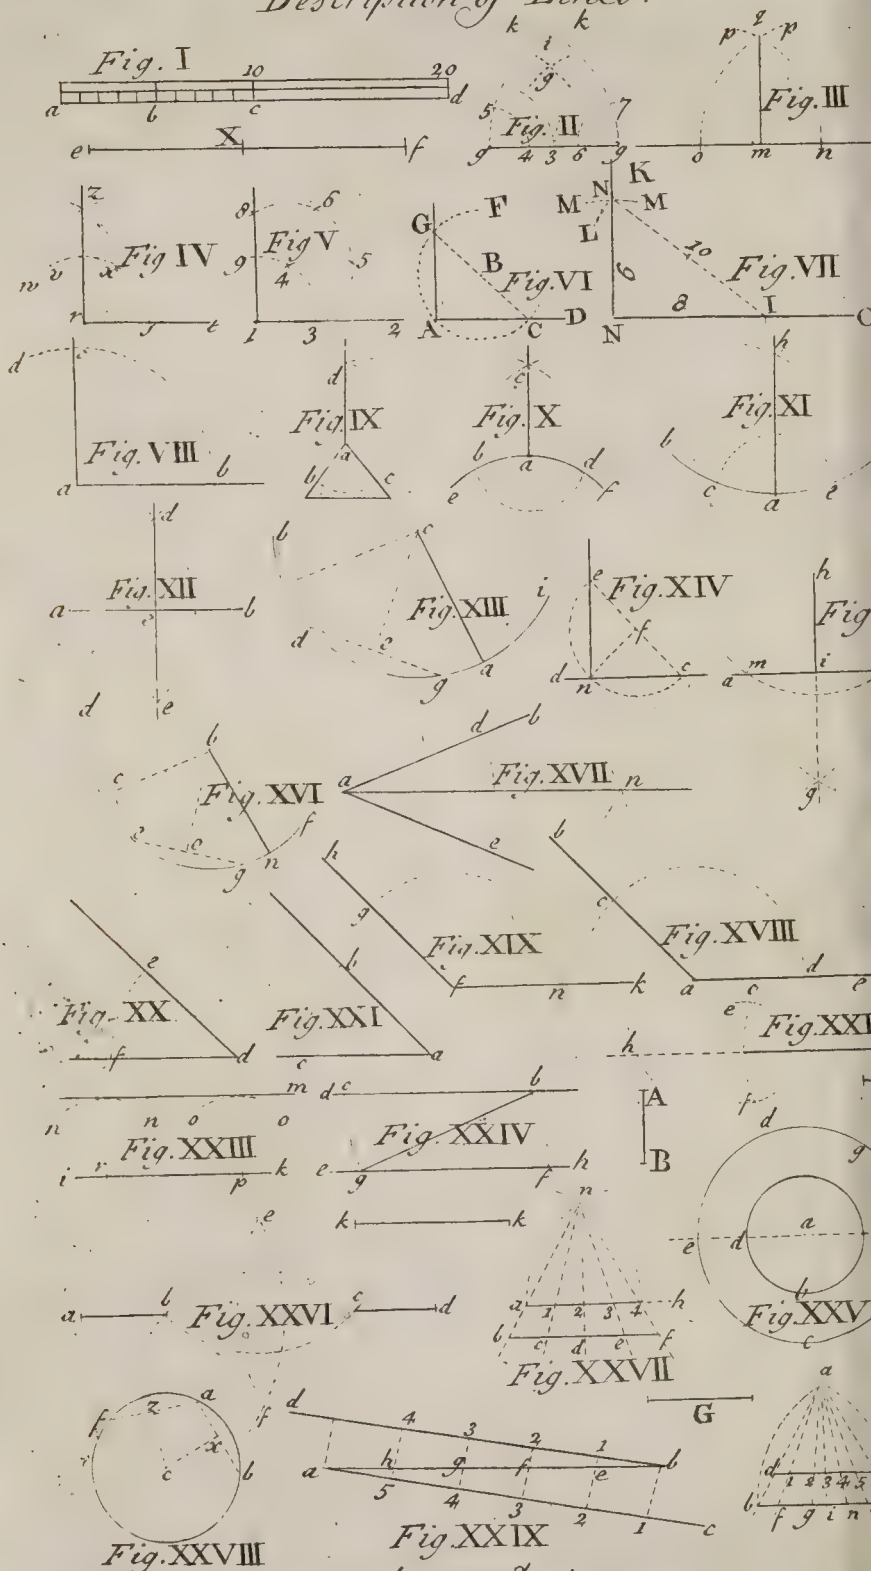 Description of Lines.
Fig. I
10
20
a b c d
e X f
k k
i
g
5 7
Fig. II
g 4 3 6 g
p q p
Fig. III
o m n
z
w v x
Fig IV
r s t
8 6
Fig V
9 4 5
1 3 2
G F
B
Fig. VI
A C D
K
M N M
L
10
6
Fig. VII
8 I
N O
d c
Fig. VIII
a b
d
Fig. IX
a
b c
c
Fig. X
b a d
e f
h
Fig. XI
b
c a e
d
Fig. XII
a c b
d e
b c
Fig. XIII
i
d e
g a
e
Fig. XIV
f
d n c
h
Fig
a m i
g
b
c
Fig. XVI
e c f
g n
d b
a
Fig. XVII
n
e
h
g
Fig. XIX
f n k
b
c
Fig. XVIII
a c d e
e
Fig. XX
f d
b
Fig. XXI
c a
e
Fig. XXI
h
f
m
n n o o
Fig. XXIII
i r p k
d c b
Fig. XXIV
e g f h
k k
A
B
d
g
a
e d
b
Fig. XXV
c
e
a b
Fig. XXVI
c d
f
n
a 1 2 3 4 h
b c d e f
Fig. XXVII
G
a
f z
x
r c b
Fig. XXVIII
d 4 3 2 1
a h g f e b
5 4 3 2 1 c
Fig. XXIX
a
d 1 2 3 4 5
b f g i n